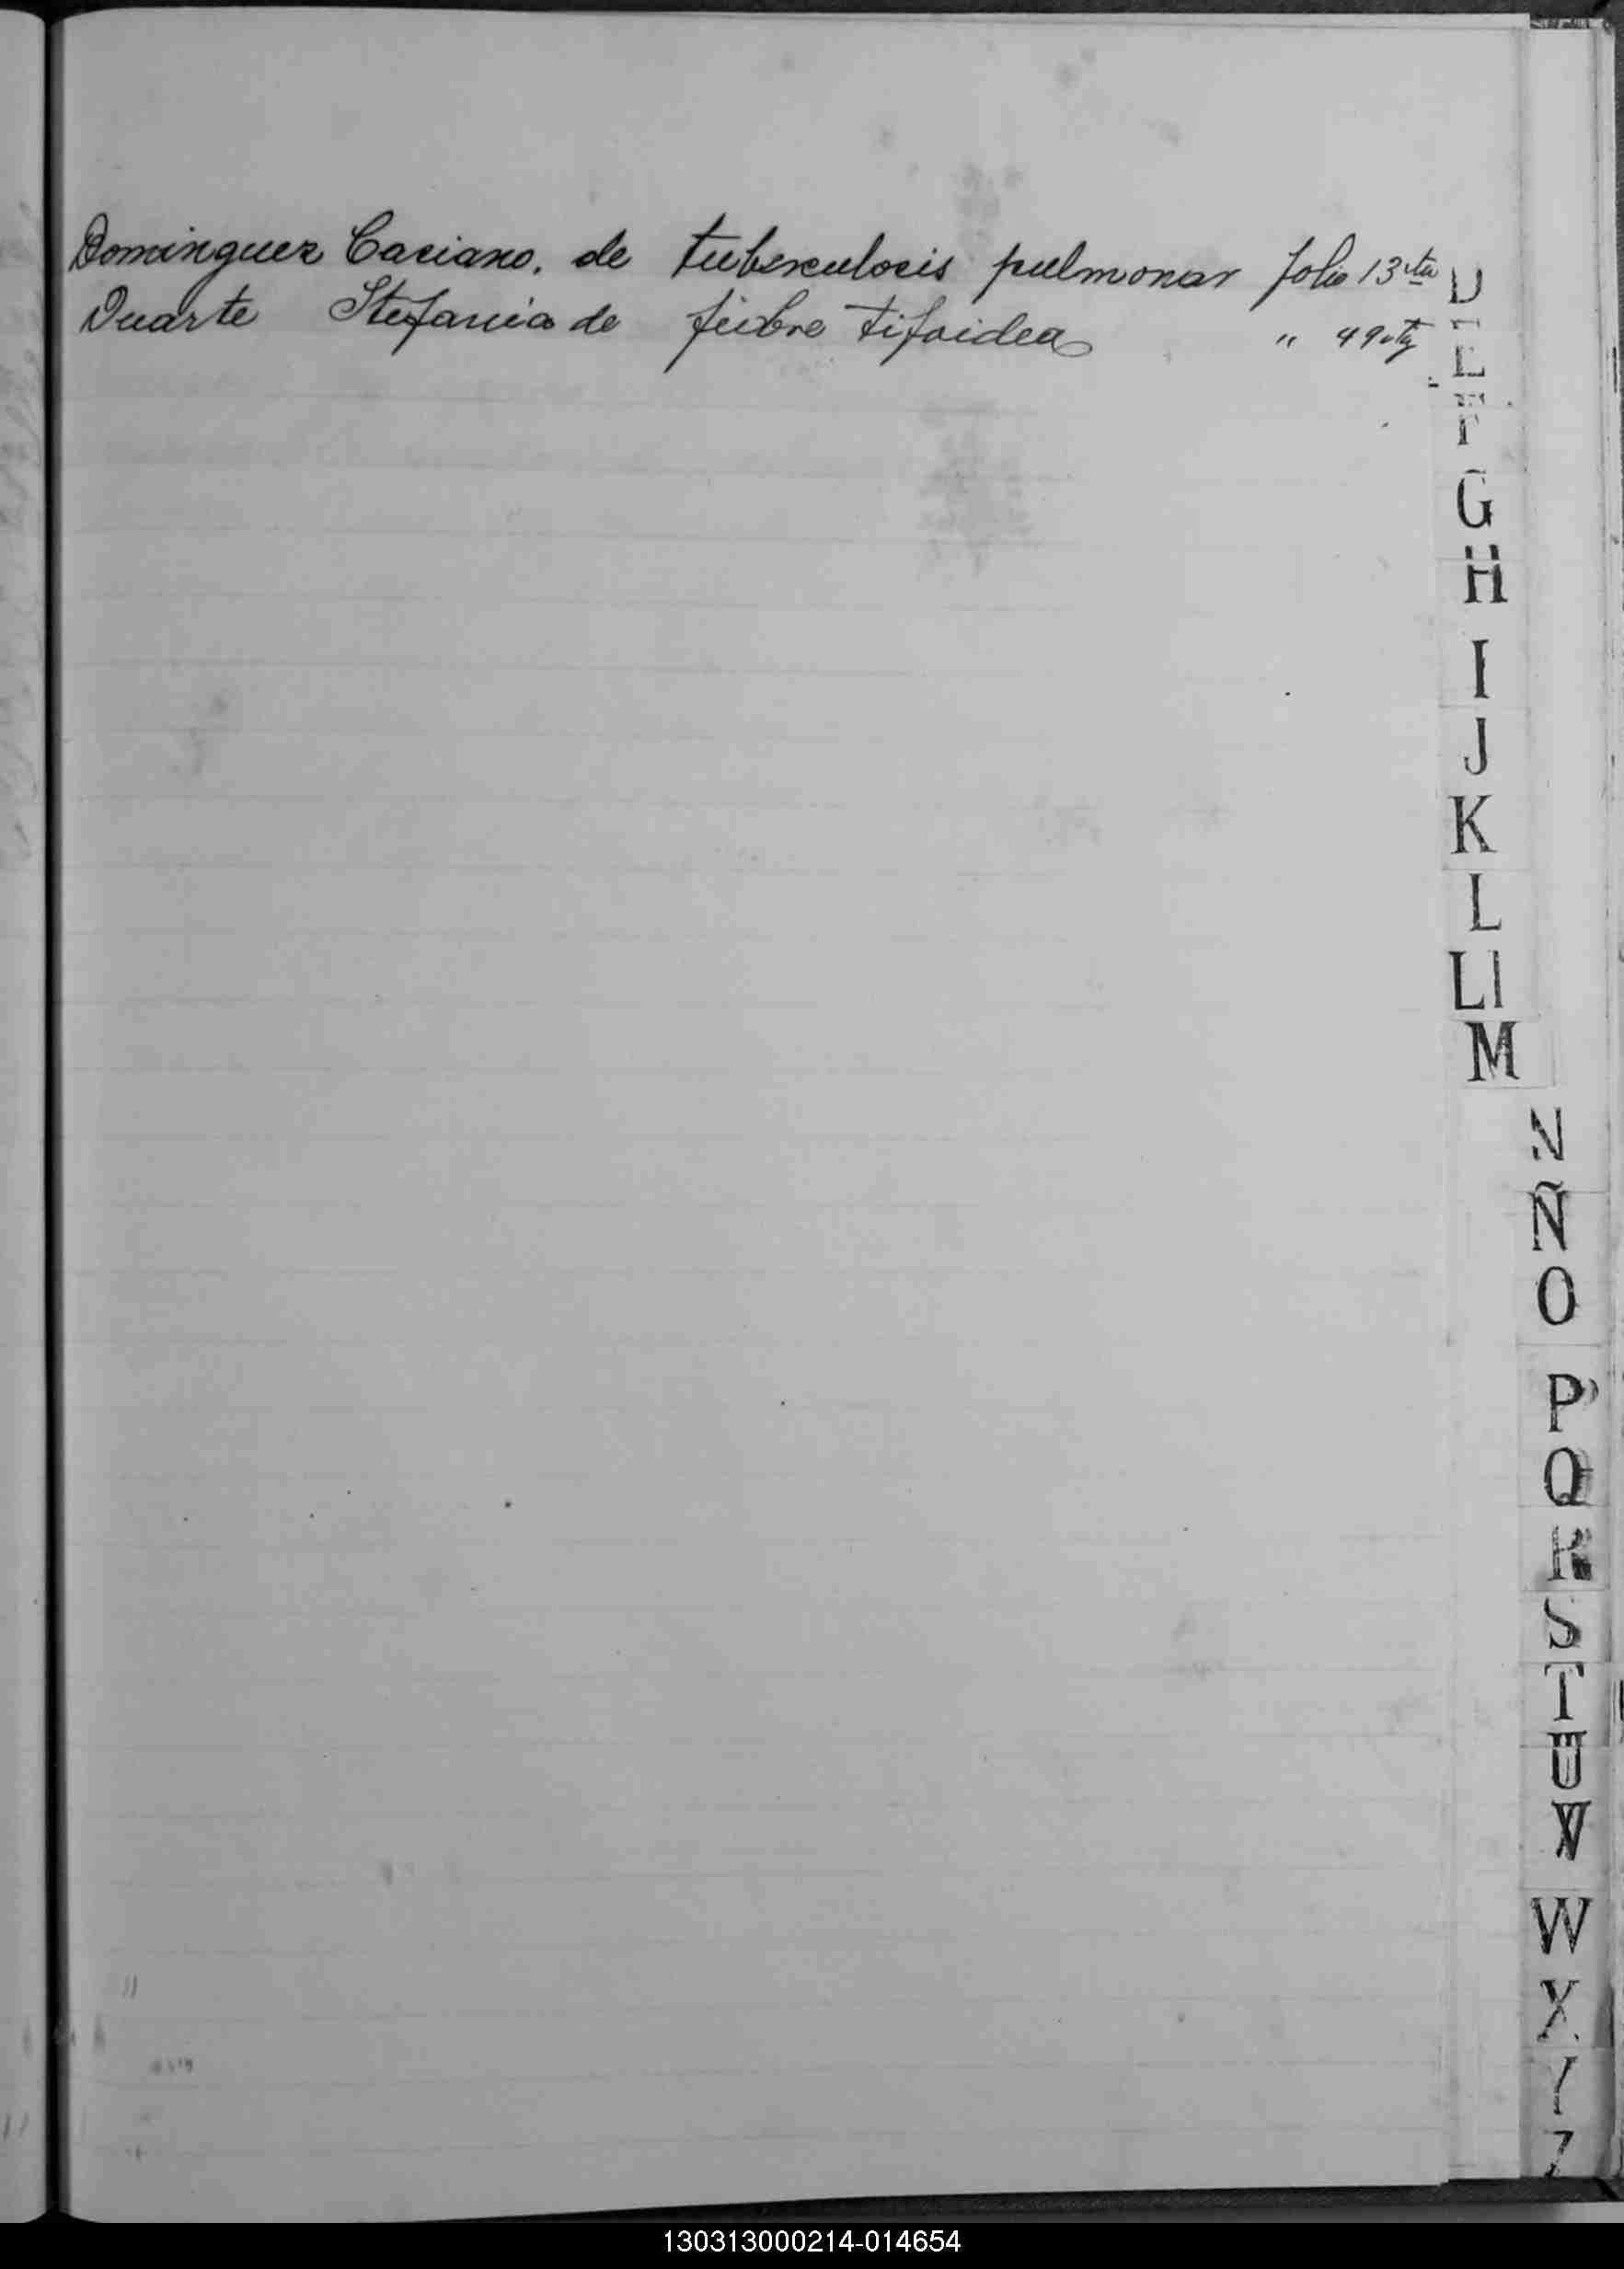 Dominguez Caciano. de tuberculosis pulmonar folio 13 vta
Duarte Stefania de fiebre tifoidea " 49 vta
D
E
F
G
H
I
J
K
L
Ll
M
N
Ñ
O
P
Q
R
S
T
U
V
W
X
Y
Z
130313000214-014654